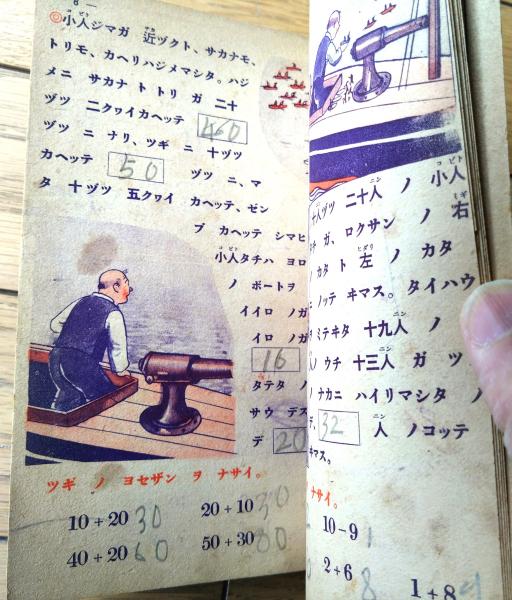 8 —
◎小人ジマガ 近ヅクト、サカナモ、
トリモ、カヘリハジメマシタ。ハジ
メニ サカナ ト トリ ガ 二十
ヅツ 二クワイカヘッテ 40
ヅツ ニ ナリ、ツギ ニ 十ヅツ
カヘッテ 50 ヅツ ニ、マ
タ 十ヅツ 五クヮイ カヘッテ、ゼン
ブ カヘッテ シマヒ
小人タチハ ヨロ
ノ ボートヲ
イイロ ノガ
イロ ノガ
16
タテタ ノ
サウ デス
デ 20
ツギ ノ ヨセザン ヲ ナサイ。
10+20 30
20+10 30
40+20 60
50+30 80
十人ヅツ 二十人 ノ 小人
ガ、ロクサン ノ 右
ノ カタ ト 左 ノ カタ
ノッテ ヰマス。タイハウ
ミテヰタ 十九人 ノ
ノ ウチ 十三人 ガ ツ
ノ ナカニ ハイリマシタ ノ
デ、32 人 ノコッテ
ヰマス。
ナサイ。
10-9 1
2+6 8
1+8 9